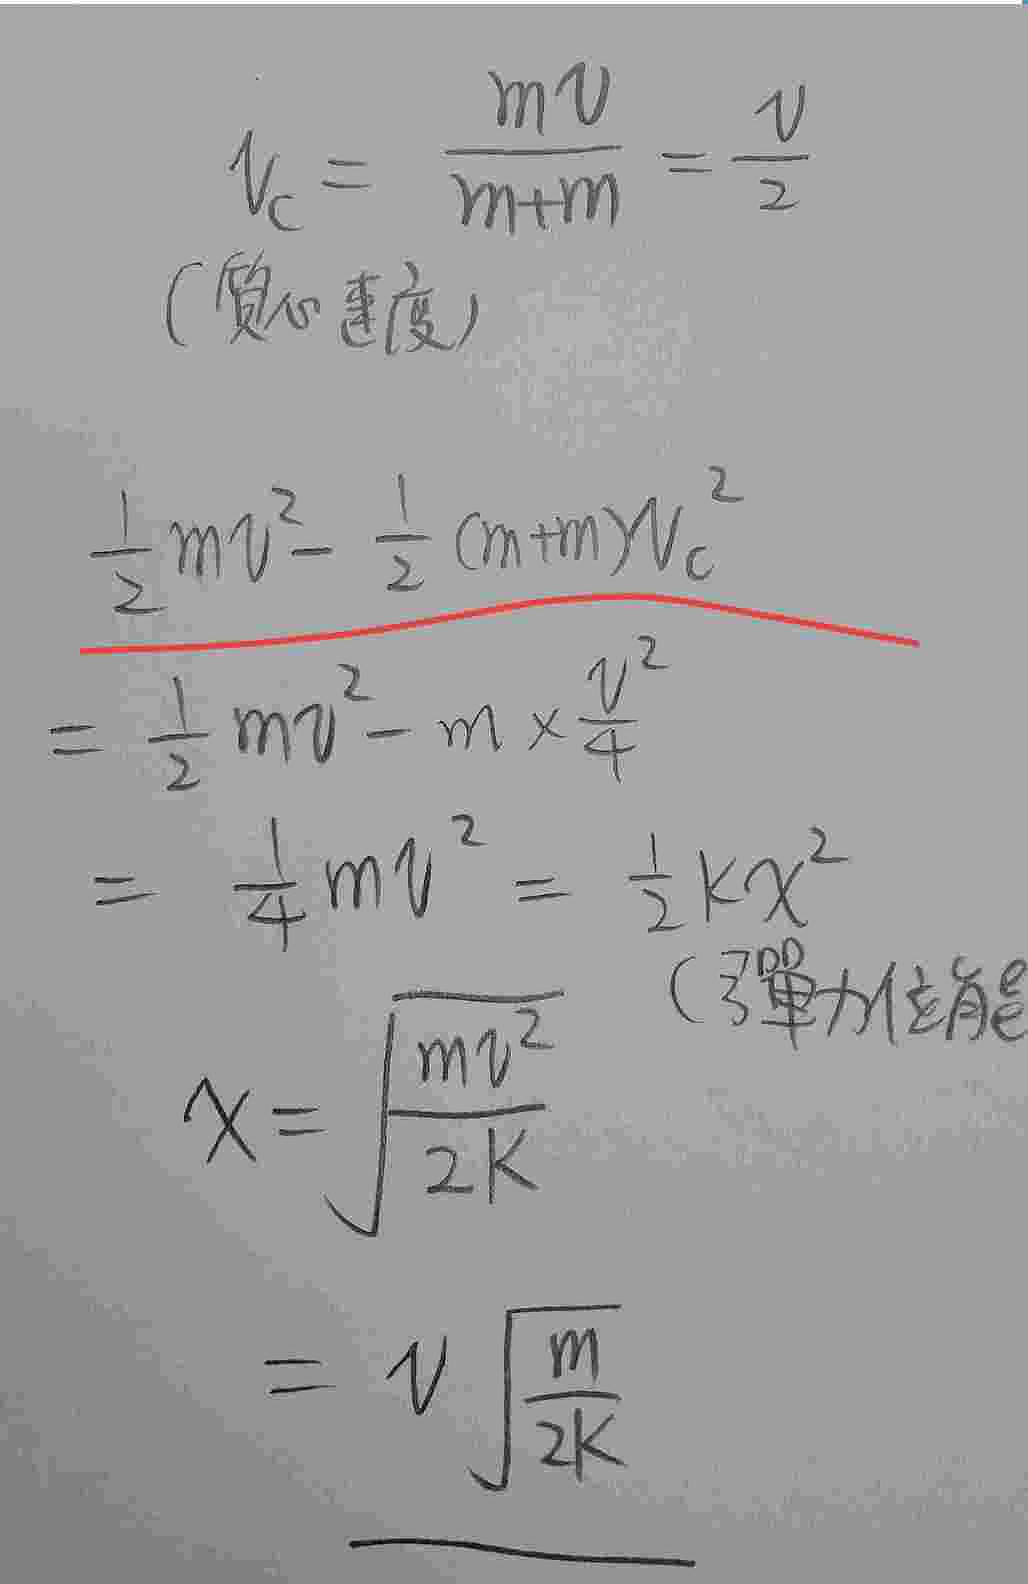 v_c = mv/(m+m) = v/2
(質心速度)
1/2 mv² - 1/2 (m+m)v_c²
= 1/2 mv² - m × v²/4
= 1/4 mv² = 1/2 kx²
(彈力位能
x = √(mv²/2k)
= v√(m/2k)